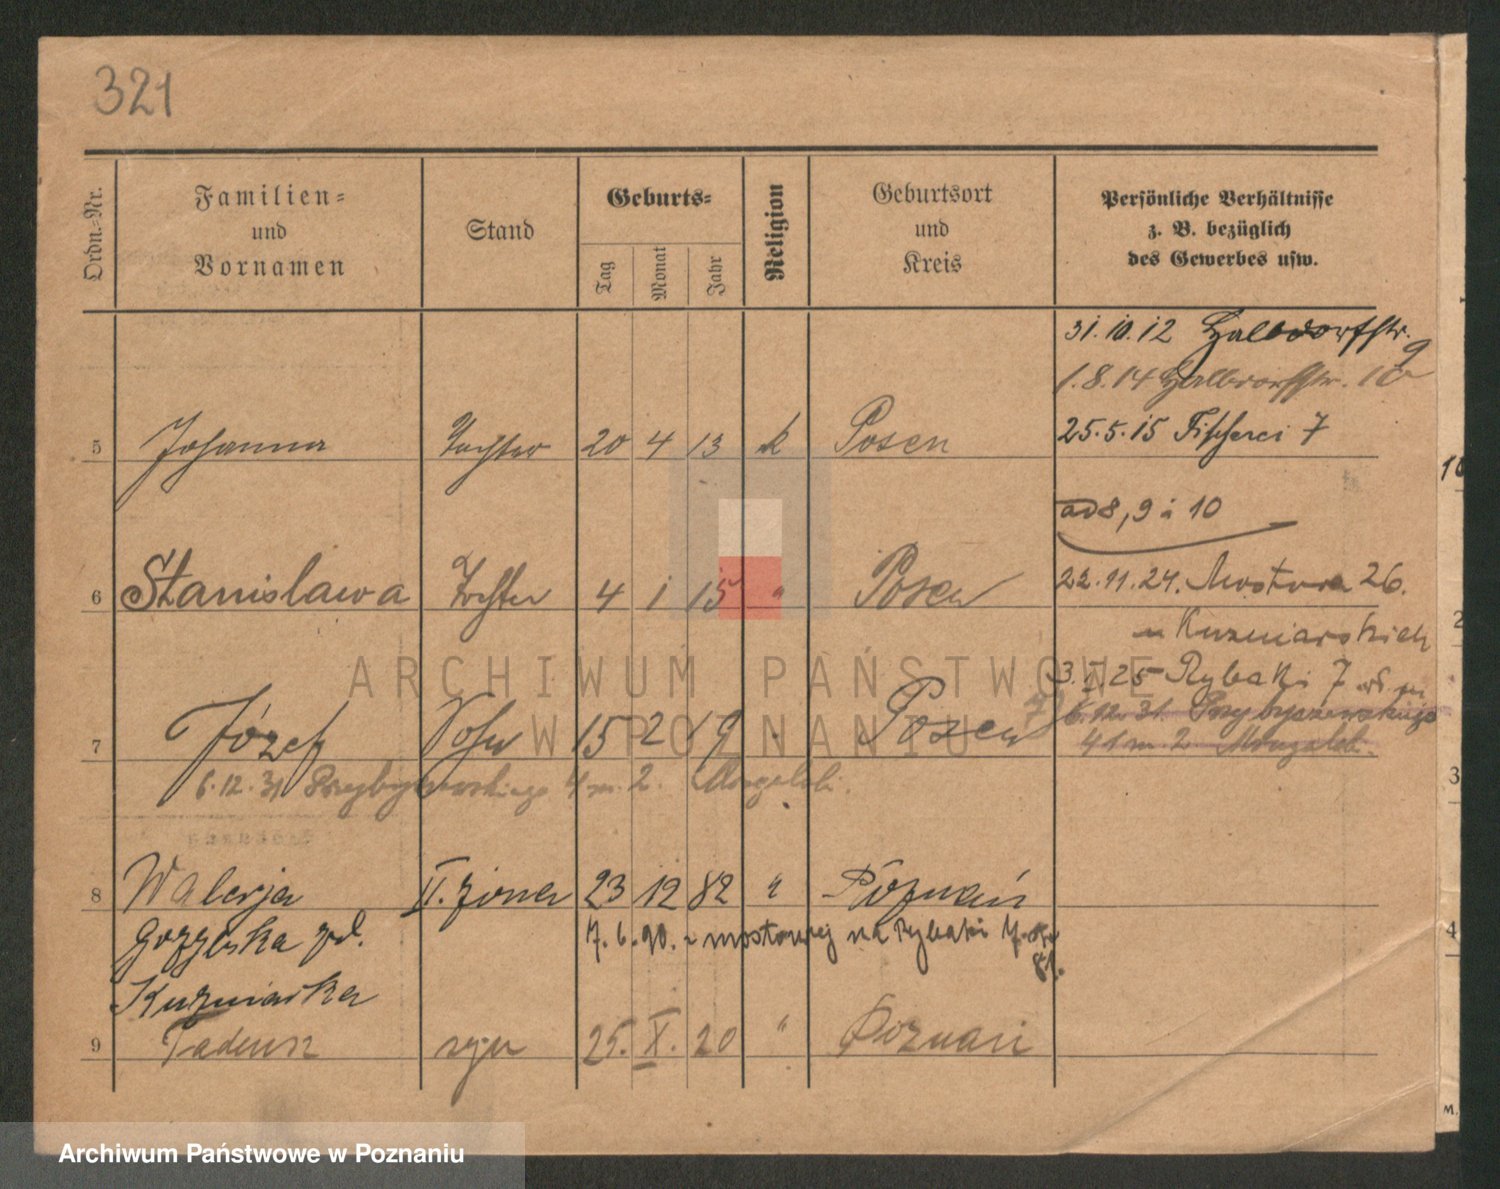 321
Ordn.-Nr.
Familien-
und
Vornamen
Stand
Geburts-
Tag
Monat
Jahr
Religion
Geburtsort
und
Kreis
Persönliche Verhältnisse
z. B. bezüglich
des Gewerbes usw.
31.10.12 Halbdorfstr. 9
1.8.14 Halbdorfstr. 10
5 Johanna Tochter 20 4 13 k Posen 25.5.15 Fischerei 7
ad 8, 9 i 10
6 Stanisława Tochter 4 1 15 " Posen 22.11.24. Mostowa 26.
u Kuzniarskich
3.1.25 Rybaki 7
7 Józef Sohn 15 2 19 Posen 6.12.31. Przybyszewskiego
41 m. 2
6.12.31 Przybyszewskiego 41 m. 2.
8 Walerja II. żona 23 12 82 " Poznań
zd. 7.6.90. mostowej na Rybaki
Kuzniarka
9 Tadeusz syn 25. X. 20 " Poznań
ARCHIWUM PAŃSTWOWE
W POZNANIU
Archiwum Państwowe w Poznaniu
10
2
3
4
M.